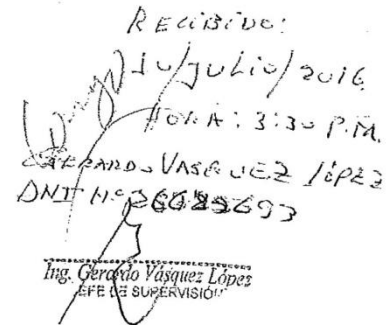 RECIBIDO:
10/JULIO/2016
HORA: 3:30 P.M.
GERARDO VASQUEZ LÓPEZ
DNI Nº
Ing. Gerardo Vásquez López
JEFE DE SUPERVISIÓN